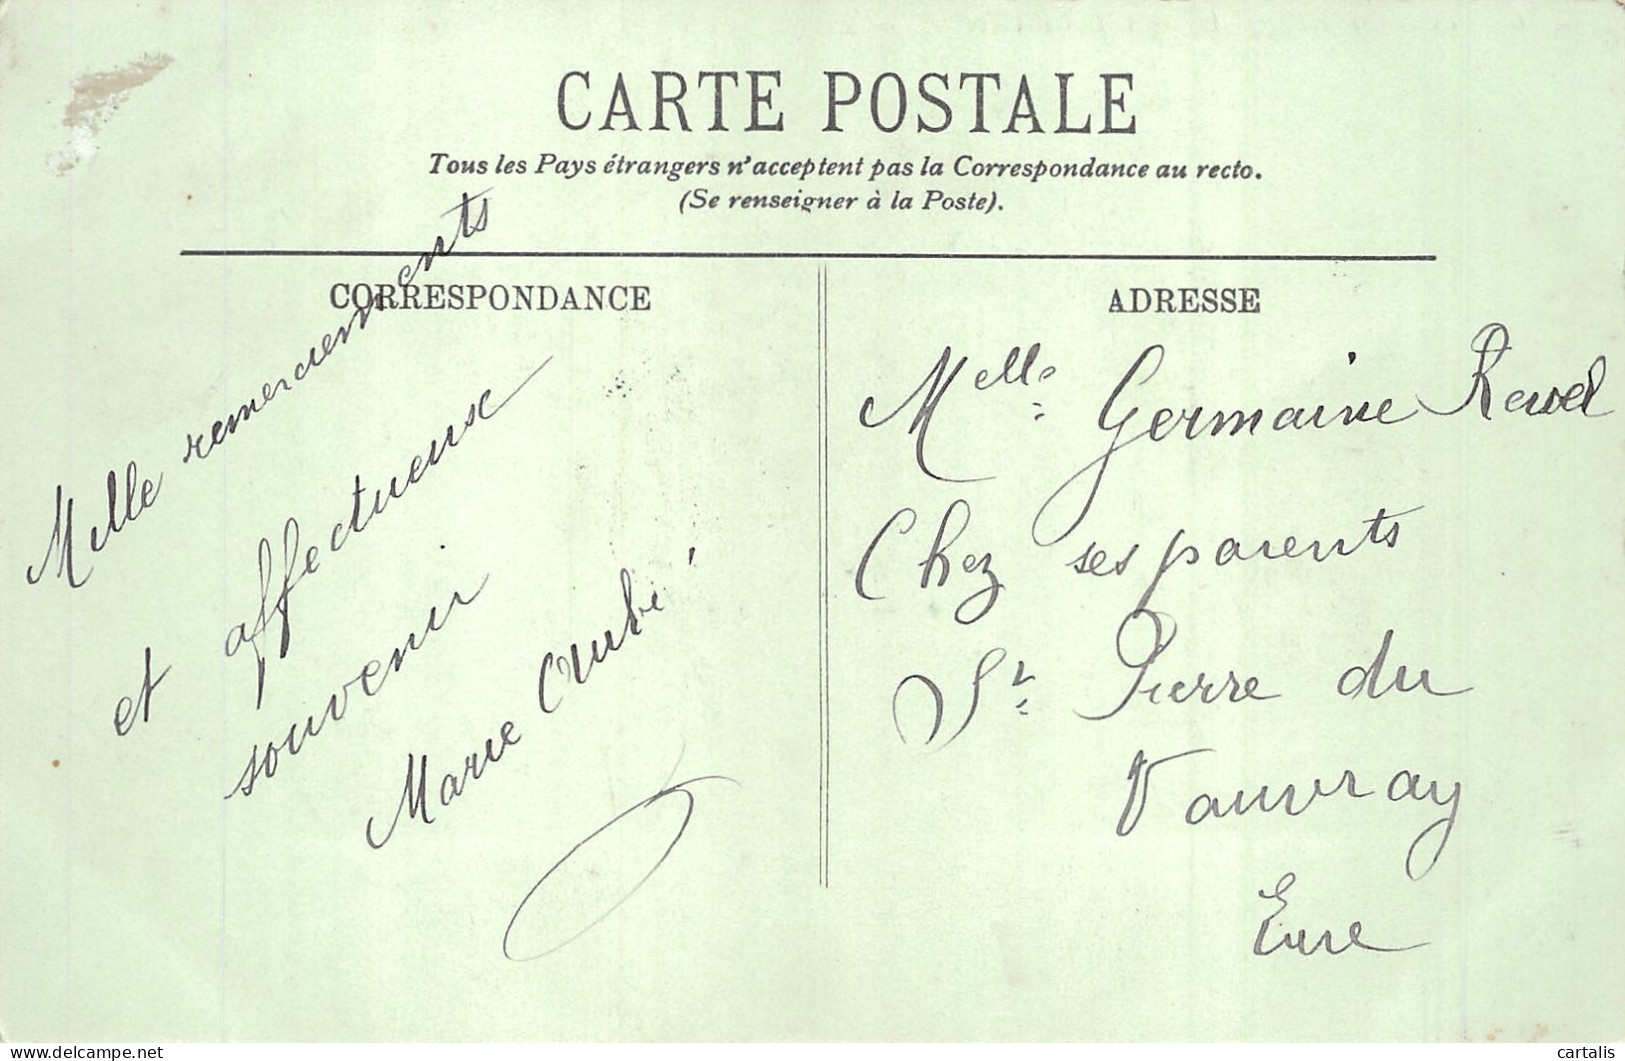 CARTE POSTALE
Tous les Pays étrangers n'acceptent pas la Correspondance au recto.
(Se renseigner à la Poste).
CORRESPONDANCE
Mille remerciements
et affectueuse
souvenir
Marie
ADRESSE
Melle Germaine
Chez ses parents
St Pierre du
Vauvray
Eure
www.delcampe.net
cartalis